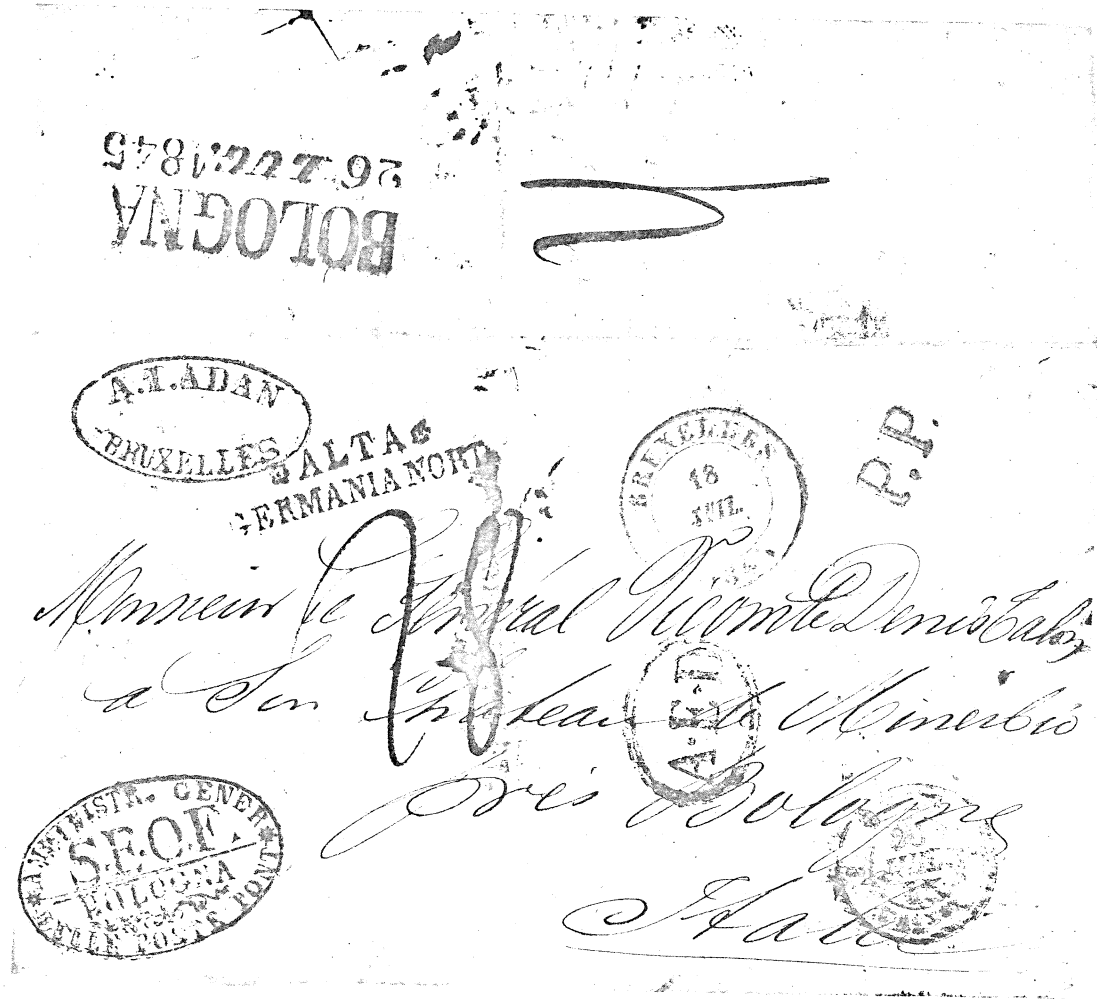 BOLOGNA
26 1845
A.I.ADAN
BRUXELLES
ALTA
GERMANIA NORD
BRUXELLES
18
JUIL.
P.P.
Monsieur le Général Vicomte Denis Talon
a Son Château de Minerbio
A.E.D
près Bologne
Italie
AMMINISTR. GENER
S.F.O.F.
BOLOGNA
DELLE POSTE PONT